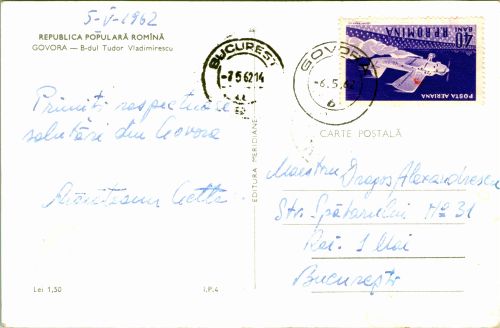 5-V-1962
REPUBLICA POPULARĂ ROMÎNĂ
GOVORA — B-dul Tudor Vladimirescu
Primiți respectuoase
salutări din Govora
BUCUREȘTI
-7.5.62 14
GOVORA
-6.5.62
6
40
BANI
R.P.ROMINA
POSTA AERIANA
EDITURA MERIDIANE
CARTE POSTALĂ
Maestru Dragoș Alexandrescu
Str. Spătarului No 31
Rai. 1 Mai
București
Lei 1,50
I.P.4